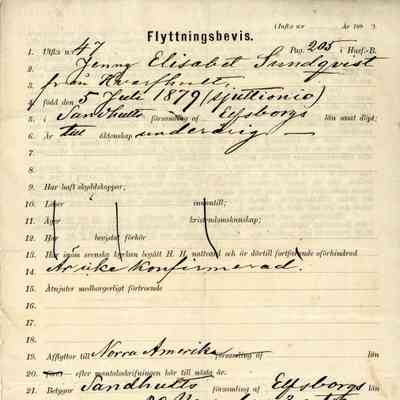 (Införs n:r År 188 .)
Flyttningsbevis.
1. Utfl:s n:r 47 Pag. 205 i Husf.-B.
2. Jenny Elisabet Sundqvist
3. från Kvarfhult
4. född den 5 Juli 1879 (sjuttionio)
5. i Sandhults församling af Elfsborgs län samt döpt;
6. Är till äktenskap underårig
7.
8.
9. Har haft skyddskoppor;
10. Läser innantill;
11. Äger kristendomskunskap;
12. Har bevistat förhör
13. Har inom svenska kyrkan begått H. H. nattvard och är därtill fortfarande oförhindrad
14. Är icke konfirmerad.
15. Åtnjuter medborgerligt förtroende
16.
17.
18.
19. Afflyttar till Norra Amerika församling af län
20. efter mantalsskrifningen här till nästa år.
21. Betygar Sandhults församling af Elfsborgs län